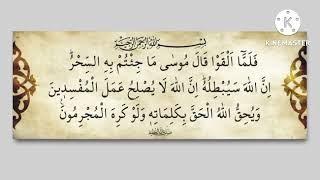 KINEMASTER
بِسْمِ اللّٰهِ الرَّحْمٰنِ الرَّحِيمِ
فَلَمَّٓا اَلْقَوْا قَالَ مُوسٰى مَا جِئْتُمْ بِهِ السِّحْرُ
اِنَّ اللّٰهَ سَيُبْطِلُهُ اِنَّ اللّٰهَ لَا يُصْلِحُ عَمَلَ الْمُفْسِدِينَ
وَيُحِقُّ اللّٰهُ الْحَقَّ بِكَلِمَاتِهِ وَلَوْ كَرِهَ الْمُجْرِمُونَ